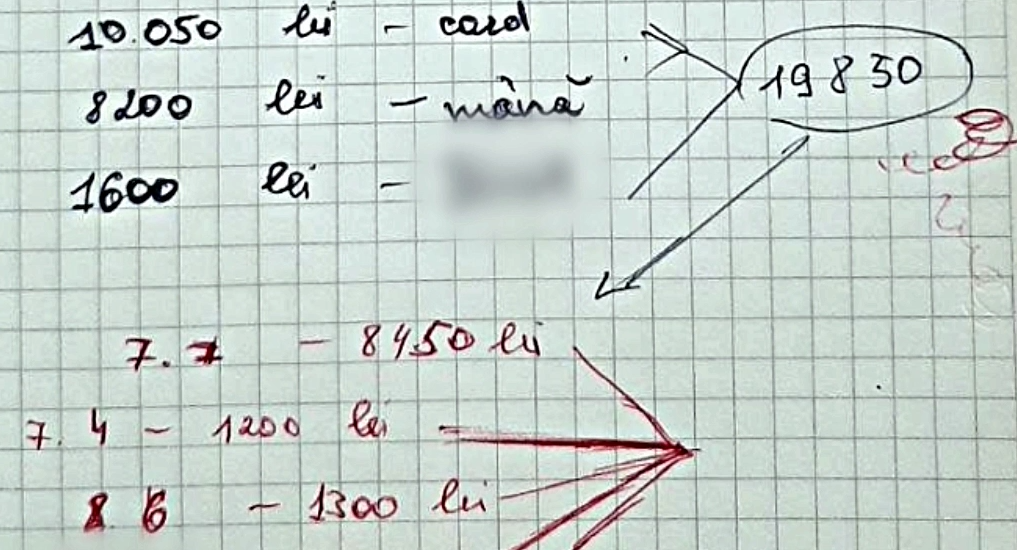 10.050 lei - card
8200 lei - mână
19850
1600 lei -
7.7 - 8450 lei
7.4 - 1200 lei
8 6 - 1300 lei